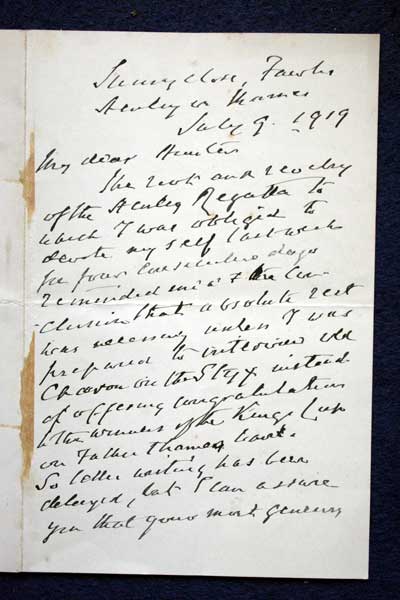 Sunnyclose, Fawley
Henley on Thames
July 9. 1919
My dear Hunter
The riot and revelry
of the Henley Regatta to
which I was obliged to
devote myself last week
for four consecutive days
reminded me the con-
-clusion that absolute rest
was necessary unless I was
prepared to interview old
Charon on the Styx instead
of offering congratulations
to the winners of the Kings Cup
on Father Thames
So letter writing has been
delayed, but I can assure
you that your most generous